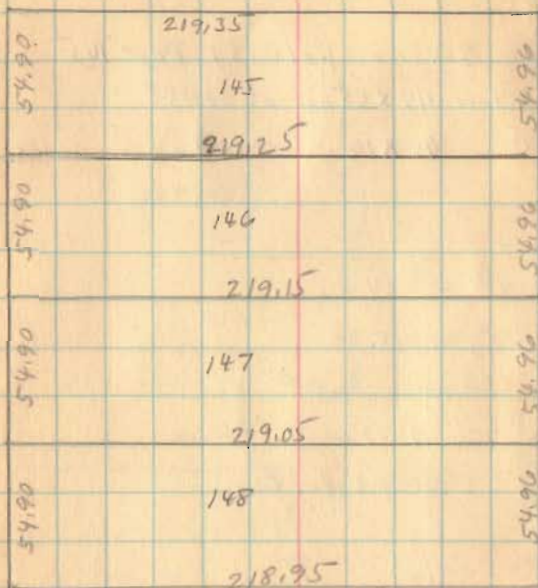 219.35
54.90 145 54.96
219.25
54.90 146 54.96
219.15
54.90 147 54.96
219.05
54.90 148 54.96
218.95